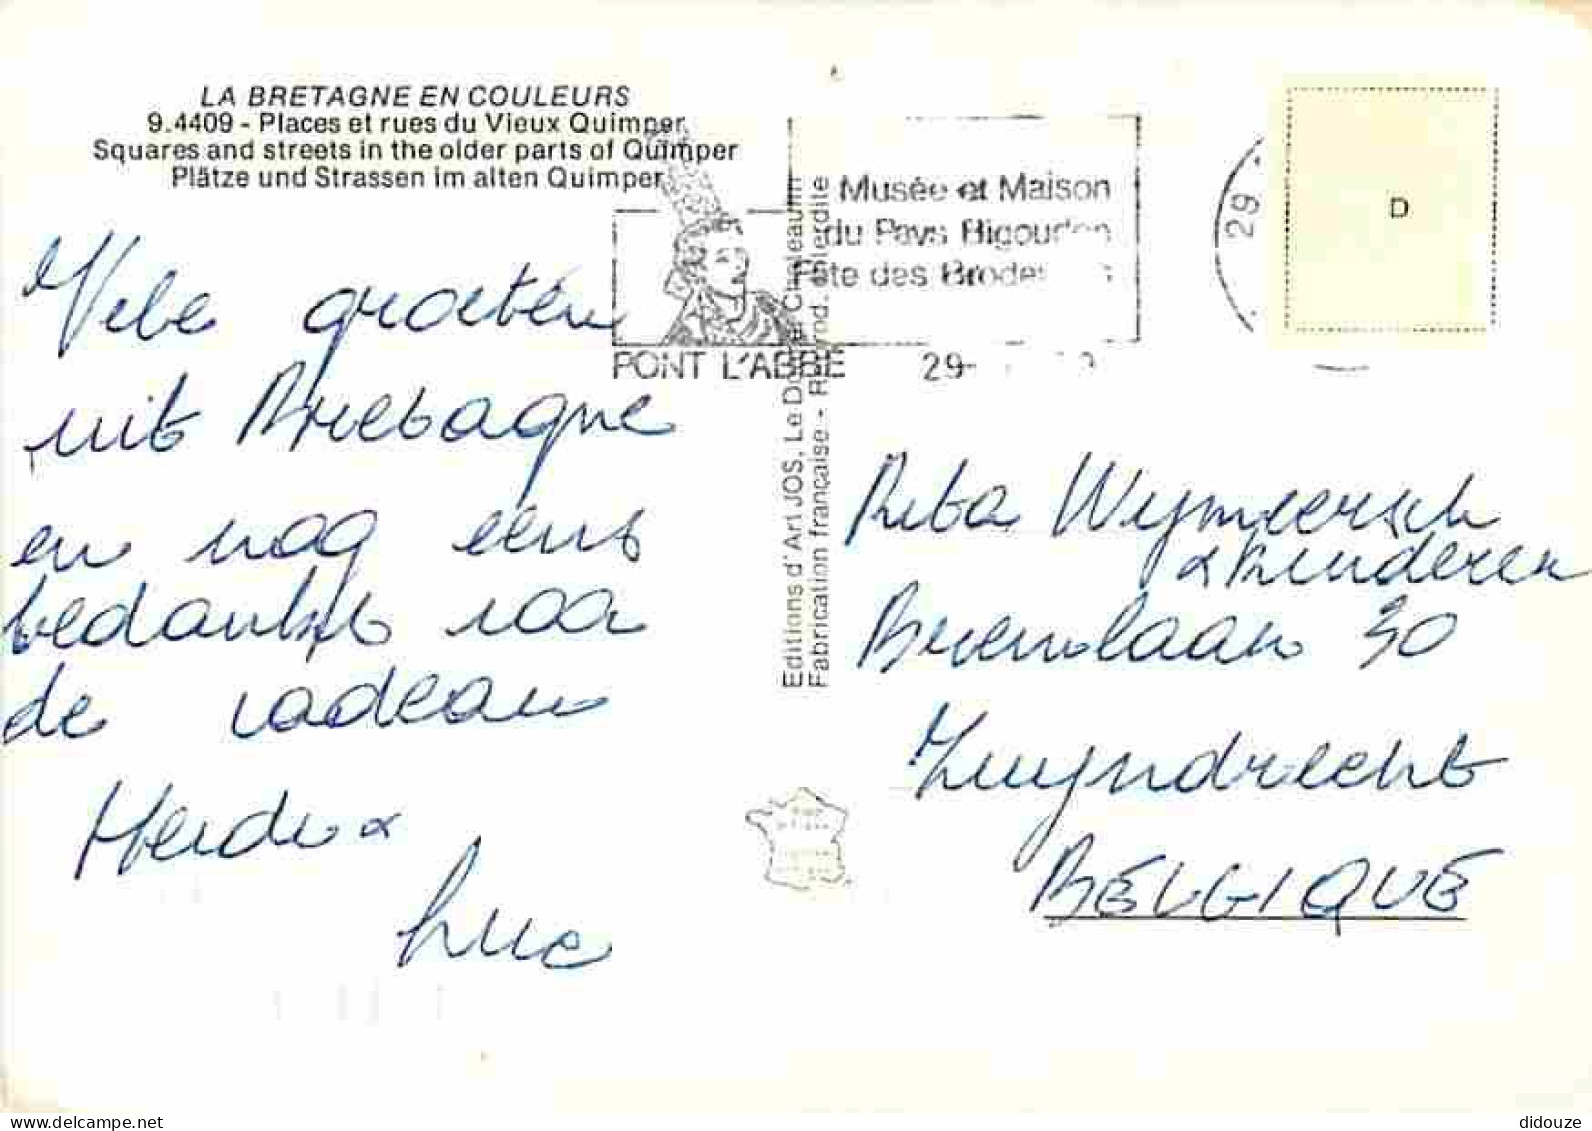 LA BRETAGNE EN COULEURS
9.4409 - Places et rues du Vieux Quimper
Squares and streets in the older parts of Quimper
Plätze und Strassen im alten Quimper
Musée et Maison
du Pays Bigouden
Fête des
PONT L'ABBE 29-
29
D
Editions d'Art JOS, Le Doaré Chateaulin
Fabrication française - Reprod. interdite
Vele groeten
uit Bretagne
en nog eens
bedankt voor
de cadeau
&
Luc
Rita Wymeersch
& kinderen
30
Zwyndrecht
BELGIQUE
didouze